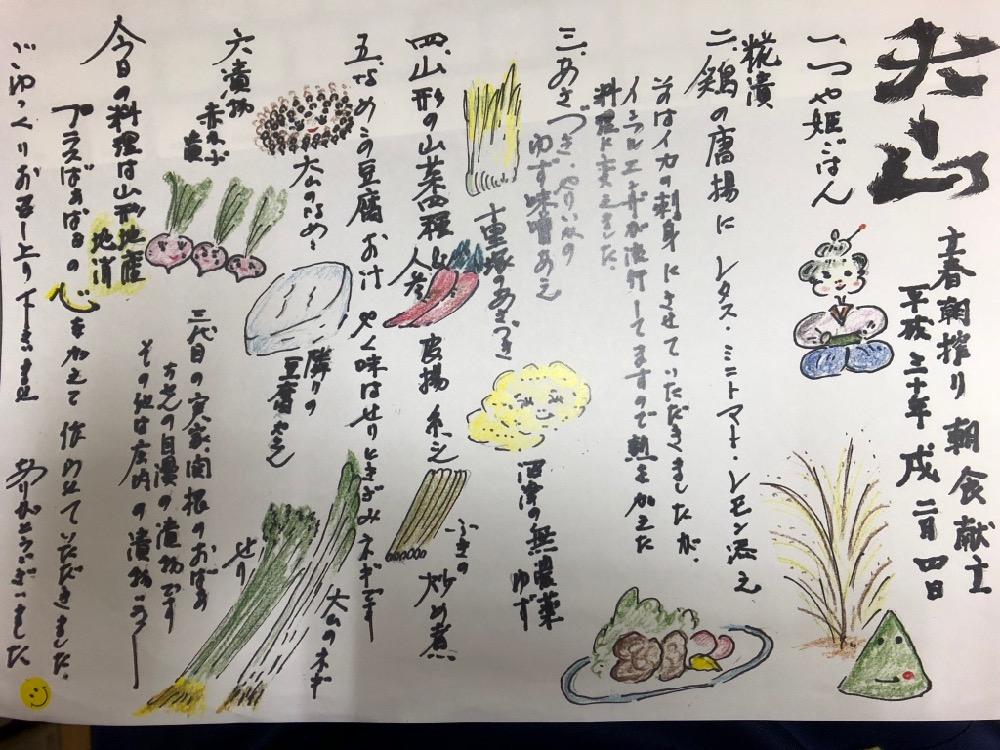 大山
立春朝搾り 朝食献立
平成三十年 戌 二月四日
一、つや姫ごはん
糀漬
二、鶏の唐揚に レタス・ミニトマト・レモン添え
前はイカの刺身にさせていただきましたが、
インフルエンザが流行してますので熱を加えた
料理に変えました。
三、あさつき、やりいかの
ゆず味噌あえ
十里塚のあさつき
沼津の無農薬
ゆず
四、山形の山菜四種
人参 皮揚 糸え
ふきの
炒め煮
五、なめこの豆腐お汁 やく味はせりときざみネギです
大山のなめこ
隣りの
豆腐やさん
大山のネギ
せり
六、漬物
赤かぶ
漬
三代目の実家関根のおばあ
ちゃんの自慢の漬物です
その他は庄内の漬物
今日の料理は山形地産
地消
プラスばぁばるの心を加えて作らせていただきました。
ごゆっくりお召し上り下さいませ ありがとうございました